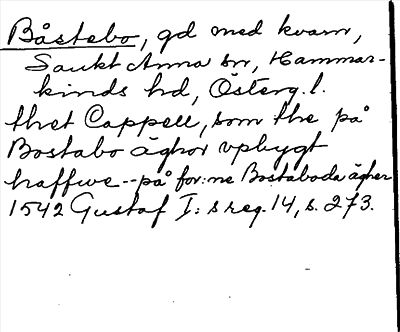 Båstebo, gd med kvarn,
Sankt Anna sn, Hammar-
kinds hd, Österg.l.
thet Cappell, som the på
Bostabo äghor vpbygt
haffwe -- på for:ne Bostaboda ägher
1542 Gustaf I:s reg. 14, s. 273.